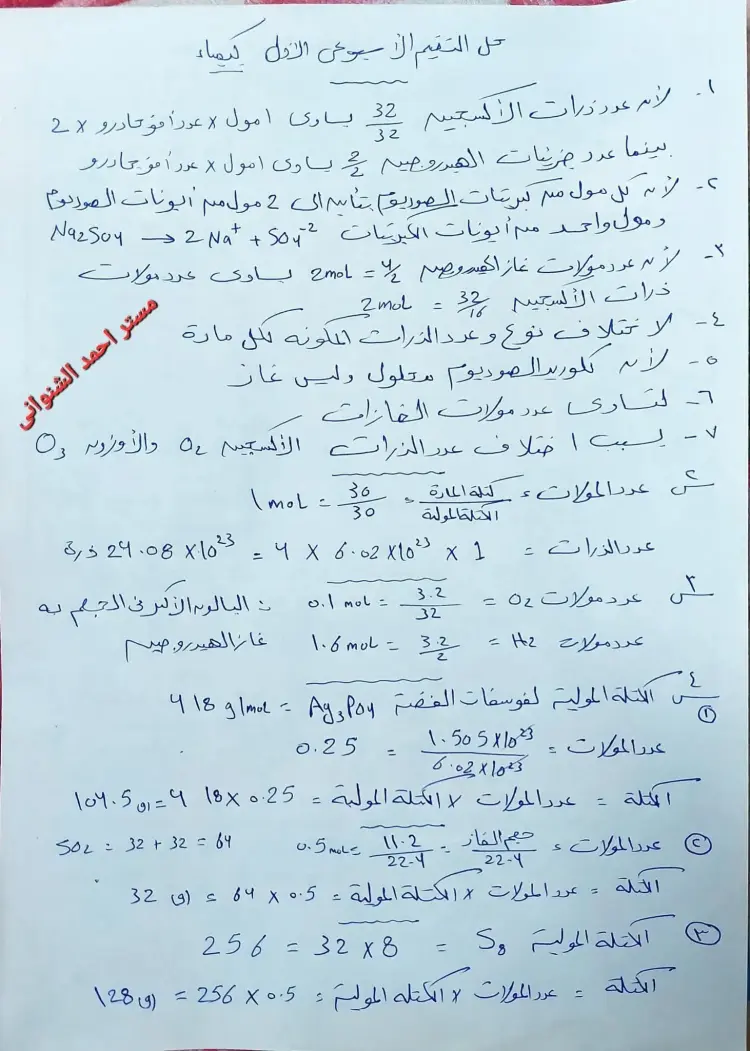 حل التقيم الأسبوعى الأول كيمياء
١- لأن عدد ذرات الأكسجين 32/32 يساوى 1 مول × عدد أفوجادرو × 2
بينما عدد جزيئات الهيدروجين 2/2 يساوى 1 مول × عدد أفوجادرو
٢- لأن كل مول من كبريتات الصوديوم يتأين الى 2 مول من أيونات الصوديوم
ومول واحد من أيونات الكبريتات Na2SO4 → 2Na+ + SO4-2
٣- لأن عدد مولات غاز الهيدروجين 4/2 = 2mol يساوى عدد مولات
ذرات الأكسجين 32/16 = 2mol
٤- لاختلاف نوع وعدد الذرات المكونه لكل مادة
٥- لأن كلوريد الصوديوم محلول وليس غاز
٦- لتساوى عدد مولات الغازات
٧- بسبب اختلاف عدد الذرات الأكسجين O2 والأوزون O3
مستر احمد الشنوانى
س٢ عدد المولات = كتلة المادة / الكتلة المولية = 30/30 = 1 mol
عدد الذرات = 1 × 6.02 × 10^23 × 4 = 24.08 × 10^23 ذرة
س٣ عدد مولات O2 = 3.2/32 = 0.1 mol ∴ البالون الأكبر فى الحجم به
عدد مولات H2 = 3.2/2 = 1.6 mol غاز الهيدروجين
س٤ ① الكتلة المولية لفوسفات الفضة Ag3PO4 = 418 g/mol
عدد المولات = 1.505 × 10^23 / 6.02 × 10^23 = 0.25
الكتلة = عدد المولات × الكتلة المولية = 0.25 × 418 = 104.5 (g)
② عدد المولات = حجم الغاز / 22.4 = 11.2/22.4 = 0.5 mol SO2 = 32 + 32 = 64
الكتلة = عدد المولات × الكتلة المولية = 0.5 × 64 = 32 (g)
③ الكتلة المولية S8 = 8 × 32 = 256
الكتلة = عدد المولات × الكتلة المولية = 0.5 × 256 = 128 (g)